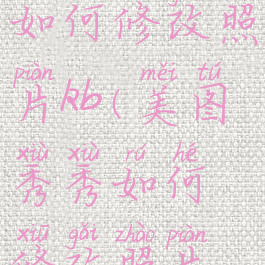 如何修改照
piàn měi tú
片kb(美图
xiù xiù rú hé
秀秀如何
xiū gǎi zhào piàn
修改照片